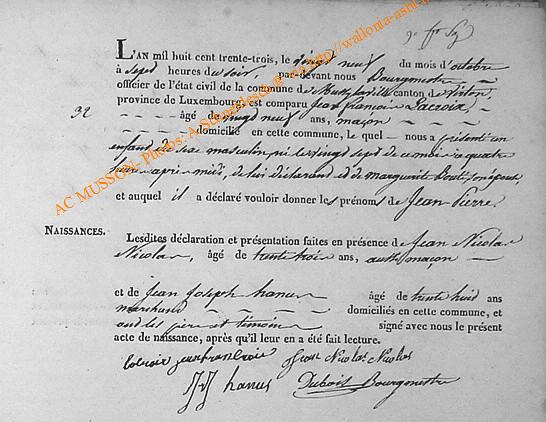 L'AN mil huit cent trente-trois, le vingt neuf du mois d'octobre
à sept heures du soir, par-devant nous Bourgmestre
officier de l'état civil de la commune de canton de Virton,
province de Luxembourg, est comparu Jean François Lacroix,
32
âgé de vingt neuf ans, maçon
domicilié en cette commune, le quel nous a présenté un
enfant de sexe masculin né le vingt sept de ce mois à quatre
heures après midi, de lui déclarant et de marguerite son épouse,
et auquel il a déclaré vouloir donner les prénoms de Jean Pierre
NAISSANCES.
Lesdites déclaration et présentation faites en présence de Jean Nicolas
Nicolas, âgé de trente trois ans, maçon
et de Jean Joseph hanus âgé de trente huit ans
marchand domiciliés en cette commune, et
ont les père et témoins signé avec nous le présent
acte de naissance, après qu'il leur en a été fait lecture.
lacroix jean francois Nicolas Nicolas
JJ hanus Dubois Bourgmestre
AC MUSSON - Photos: A. http://wallonia-asbl